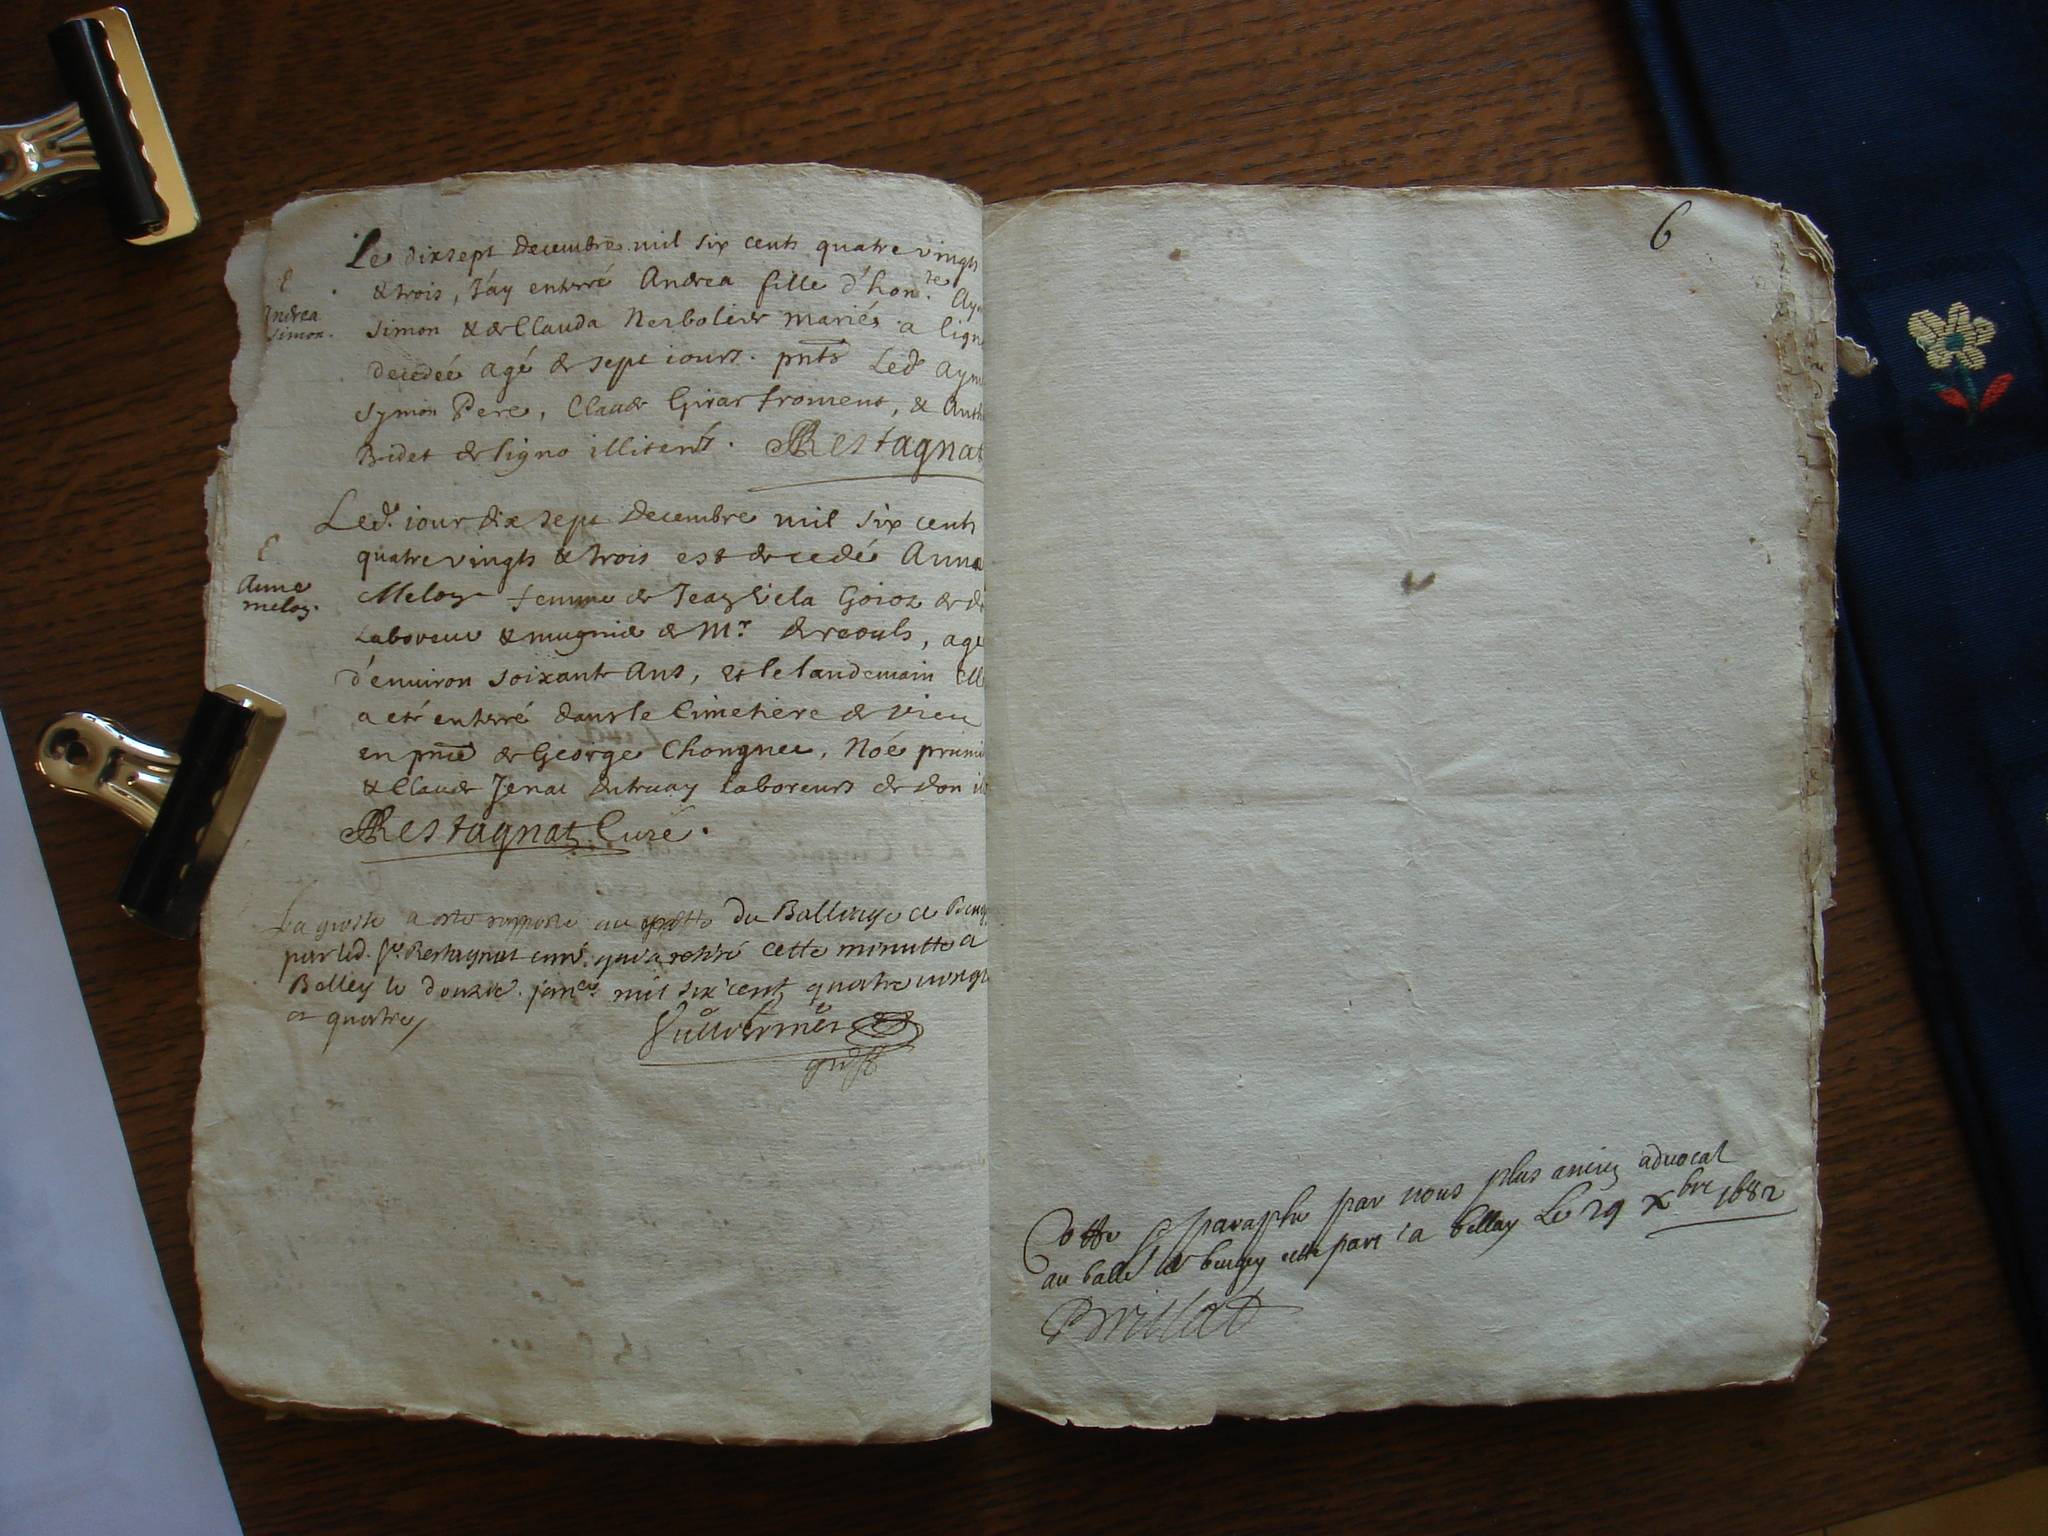 Le dixsept decembre mil six cents quatre vingts
& trois, J'ay enterré Andrea fille d'hon.te Aym
E
Andrea
Simon.
Simon & de Clauda Nerbolier mariés a lign
decedeé agé de sept iours. pnts Led. aym
Symon Pere, Claude Girar froment, & Anth
Bidet de ligno illiterés. Restagnat
Led. iour dix sept decembre mil six cents
quatre vingts & trois est decedé Anna
E
Anne
meloz.
Meloz femme de Jean Goioz de
Laboreur & mugnie de Mr. de reouls, agé
d'enuiron soixante Ans, et le landemain elle
a eté enterré dans le Cimetiere de vieu
en pnce de George Chongnee, Noé
& Claude Jenat laboreurs de don
Restagnat Curé.
La grosse a este rapporté au greffe du Balliage de Beug
par led. sr. Restagnat curé. qui a retiré cette minutte a
Belley le douzie. janer. mil six cent quatre uingt
et quatre
Vuillermet
greff
6
Cotte & paraphe par nous plus ancien aduocat
au balle de beugey cette part a bellay Le 29 Xbre 1682
Brillat